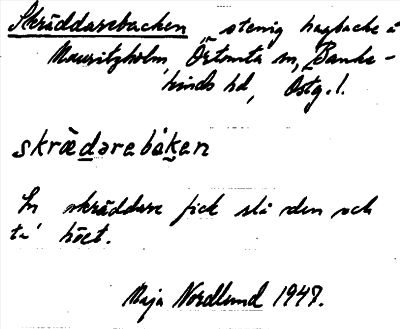 Skräddarebacken, stenig hagbacke å
Mauritzholm, Örtomta sn, Banke-
kinds hd, Östg. l.
skrädarebakan
En skräddare fick slå den och
ta' höet.
Maja Nordlund 1947.